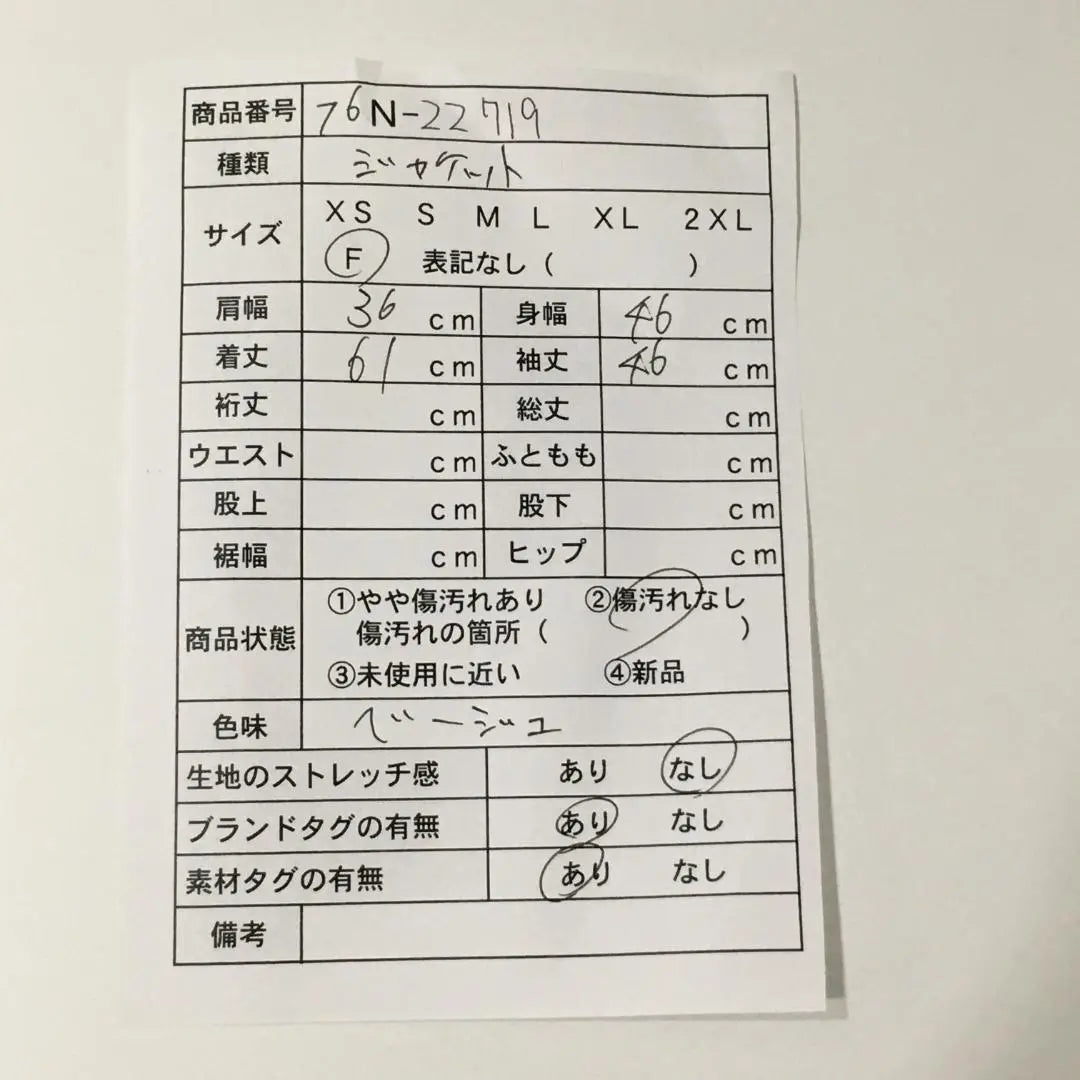 商品番号 76N-22719
種類 ジャケット
サイズ XS S M L XL 2XL
F 表記なし ( )
肩幅 36 cm 身幅 46 cm
着丈 61 cm 袖丈 46 cm
裄丈 cm 総丈 cm
ウエスト cm ふともも cm
股上 cm 股下 cm
裾幅 cm ヒップ cm
商品状態 ①やや傷汚れあり ②傷汚れなし
傷汚れの箇所 ( )
③未使用に近い ④新品
色味 ベージュ
生地のストレッチ感 あり なし
ブランドタグの有無 あり なし
素材タグの有無 あり なし
備考